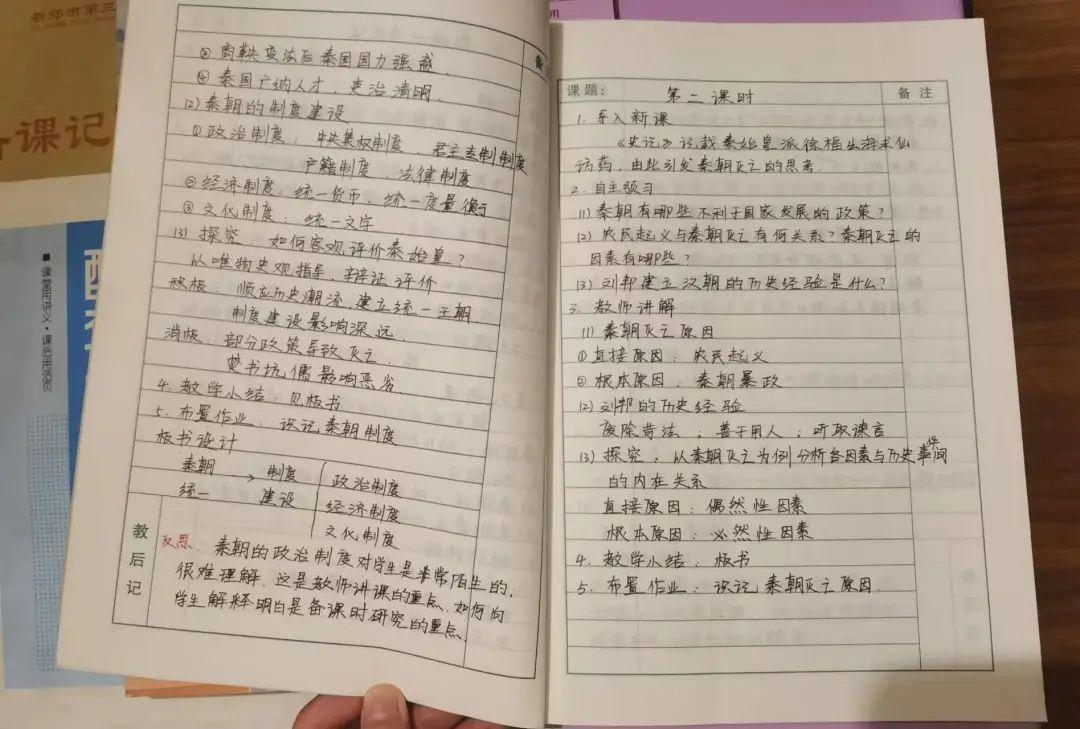 新郑市第三
备课记
课堂用讲义·课后用活页
用
备
③ 商鞅变法后秦国国力强盛.
④ 秦国广纳人才, 吏治清明.
(2) 秦朝的制度建设
① 政治制度: 中央集权制度、君主专制制度
户籍制度、法律制度
② 经济制度: 统一货币、统一度量衡
③ 文化制度: 统一文字
(3) 探究: 如何客观评价秦始皇?
以唯物史观指导, 辩证评价
积极: 顺应历史潮流, 建立统一王朝
制度建设影响深远.
消极: 部分政策导致灭亡.
焚书坑儒影响恶劣.
4. 教学小结: 见板书
5. 布置作业: 识记秦朝制度
板书设计
秦朝 → 制度 政治制度
统一 建设 经济制度
文化制度
教后记
反思: 秦朝的政治制度对学生是非常陌生的,
很难理解. 这是教师讲课的重点、如何向
学生解释明白是备课时研究的重点.
课题: 第二课时 备注
1. 导入新课
《史记》记载秦始皇派徐福出海求仙
访药, 由此引发秦朝灭亡的思考.
2. 自主预习
(1) 秦朝有哪些不利于国家发展的政策?
(2) 农民起义与秦朝灭亡有何关系? 秦朝灭亡的
因素有哪些?
(3) 刘邦建立汉朝的历史经验是什么?
3. 教师讲解
(1) 秦朝灭亡原因
① 直接原因: 农民起义
② 根本原因: 秦朝暴政
(2) 刘邦的历史经验
废除苛法; 善于用人; 听取谏言
(3) 探究: 以秦朝灭亡为例分析各因素与历史事件间
的内在关系
直接原因: 偶然性因素
根本原因: 必然性因素
4. 教学小结: 板书
5. 布置作业: 识记秦朝灭亡原因.